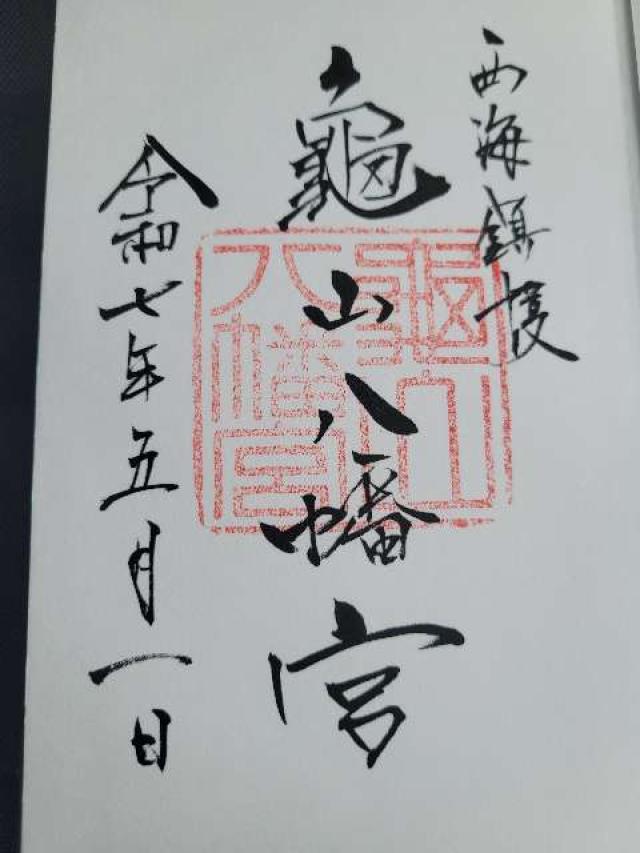 西海鎮護
龜山八幡宮
令和七年五月一日
龜山
八幡宮